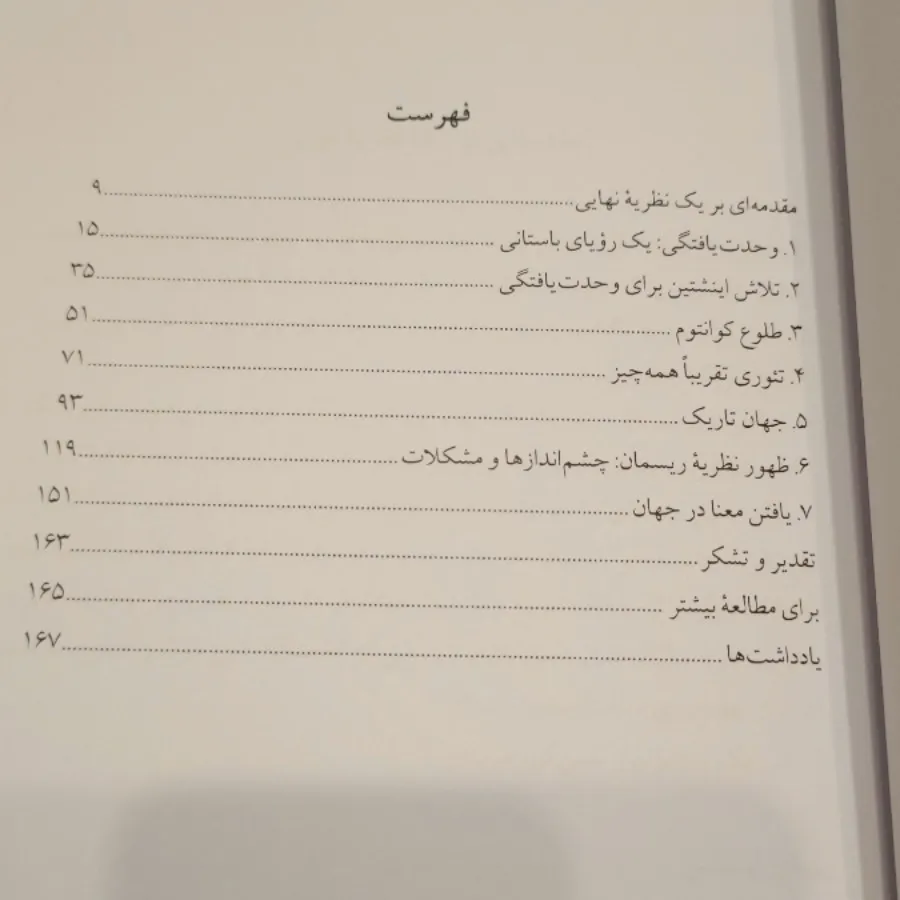 فهرست
مقدمه‌ای بر یک نظریهٔ نهایی........................ ۹
۱. وحدت‌یافتگی: یک رؤیای باستانی........................ ۱۵
۲. تلاش اینشتین برای وحدت‌یافتگی........................ ۳۵
۳. طلوع کوانتوم........................ ۵۱
۴. تئوری تقریباً همه‌چیز........................ ۷۱
۵. جهان تاریک........................ ۹۳
۶. ظهور نظریهٔ ریسمان: چشم‌اندازها و مشکلات........................ ۱۱۹
۷. یافتن معنا در جهان........................ ۱۵۱
تقدیر و تشکر........................ ۱۶۳
برای مطالعهٔ بیشتر........................ ۱۶۵
یادداشت‌ها........................ ۱۶۷